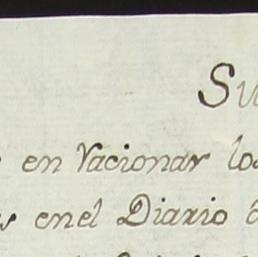 Su
en Vacionar los
s en el Diario